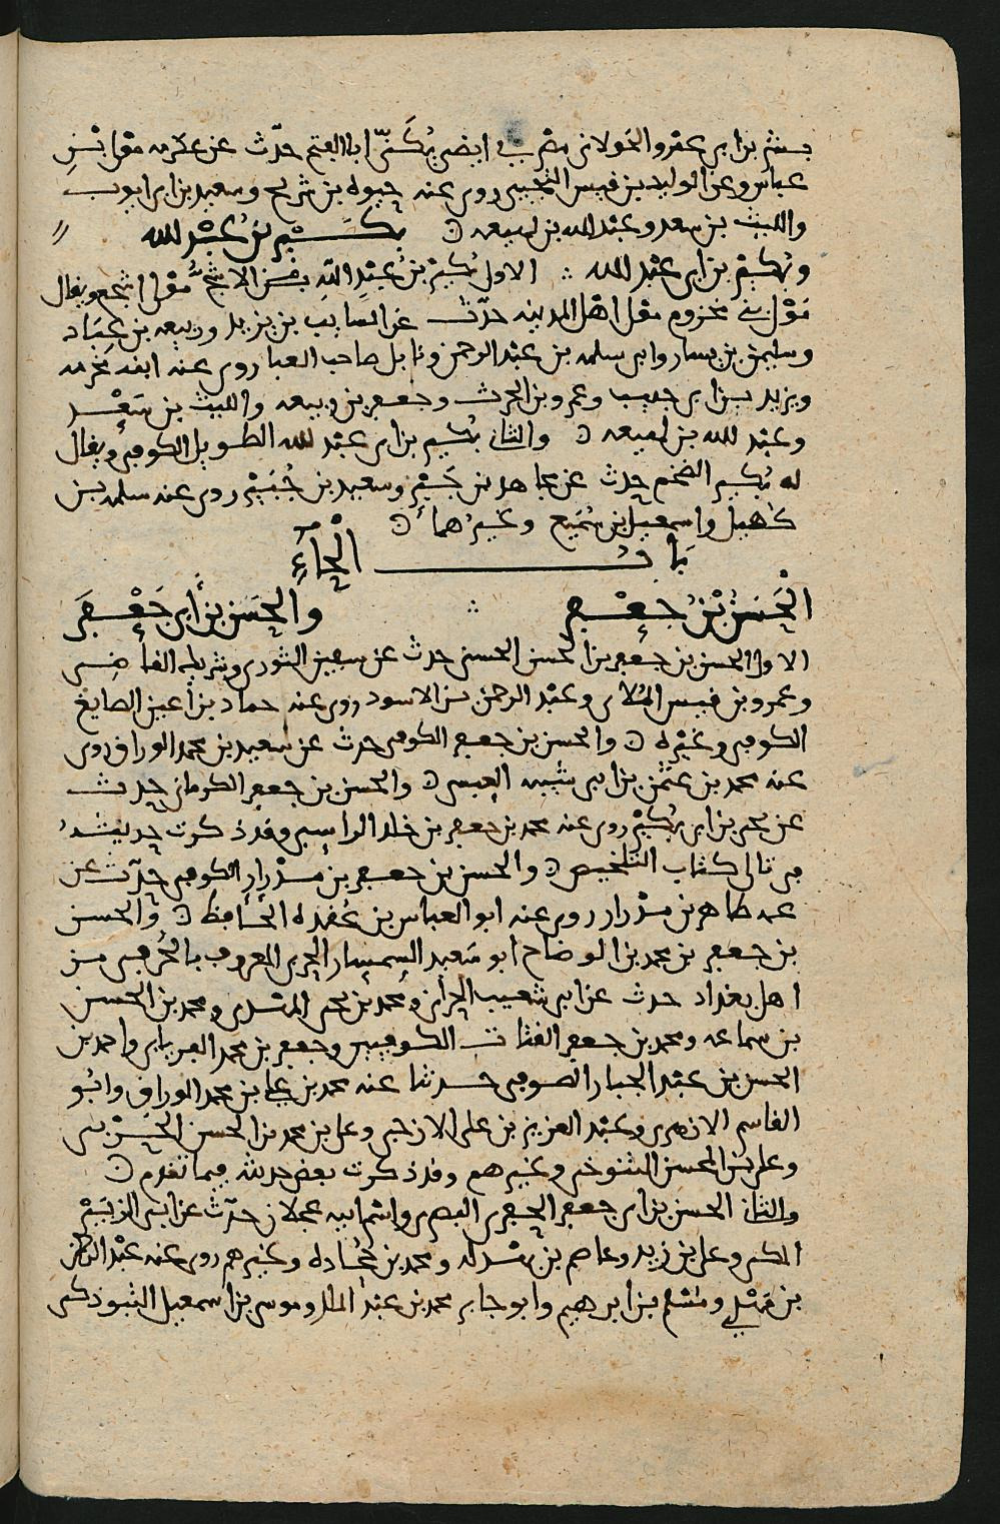 بشير بن ابى عمرو الخولانى مصرى ايضى يكنى ابا الفتح حدث عن عكرمه مولى ابن
عباس وعن الوليد بن قيس التجيبى روى عنه حيوه بن شريح وسعيد بن ابى ايوب
والليث بن سعد وعبد الله بن لهيعه ن بكير بن عبد الله
وبكير بن ابى عبد الله ∴ الاول بكير بن عبد الله بن الاشج مولى اشجع ويقال
مولى بنى مخزوم مولى اهل المدينه حدث عن السايب بن يزيد وربيعه بن عباد
وسليمن بن يسار وابى سلمه بن عبد الرحمن ونابل صاحب العبا روى عنه ابنه مخرمه
ويزيد بن ابى حبيب وعمرو بن الحرث وجعفر بن ربيعه والليث بن سعد
وعبد الله بن لهيعه ن والثانى بكير بن ابى عبد الله الطويل الكوفى ويقال
له بكير الضخم حدث عن مجاهد بن جبر وسعيد بن جبير روى عنه سلمه بن
كهيل واسمعيل بن سميع وغيرهما ن
باب الحاء
الحسن بن جعفر ∴ والحسن بن أبى جعفر
الاول الحسن بن جعفر بن الحسن الحسنى حدث عن سفين الثورى وشريك القاضى
وعمرو بن قيس الملاى وعبد الرحمن بن الاسود روى عنه حماد بن أعين الصايغ
الكوفى وغيره ن والحسن بن جعفر الكوفى حدث عن سعيد بن محمد الوراق روى
عنه محمد بن عثمن بن ابى شيبه العبسى ن والحسن بن جعفر الكرمانى حدث
عن يحيى بن ابى بكير روى عنه محمد بن جعفر بن خلد الراسبى وقد ذكرت حديثه
فى تالى كتاب التلخيص ن والحسن بن جعفر بن مدرار الكوفى حدث عن
عمه طاهر بن مدرار روى عنه ابو العباس بن عقده الحافظ ن والحسن
بن جعفر بن محمد بن الوضاح ابو سعيد السمسار الحربى المعروف بالحرفى من
اهل بغداد حدث عن ابى شعيب الحرانى ومحمد بن يحيى المروزى ومحمد بن الحسن
بن سماعه ومحمد بن جعفر القتات الكوفيين وجعفر بن محمد الفريابى واحمد بن
الحسن بن عبد الجبار الصوفى حدثنا عنه محمد بن على بن محمد الوراق وابو
القاسم الازهرى وعبد العزيز بن على الازجى وعلى بن محمد بن الحسن الحربى
وعلى بن المحسن التنوخى وغيرهم وقد ذكرت بعض حديثه فيما تقدم ن
والثانى الحسن بن ابى جعفر الجفرى البصرى واسم ابيه عجلان حدث عن ابى الزبير
المكى وعلى بن زيد وعاصم بن بهدله ومحمد بن جحاده وغيرهم روى عنه عبد الرحمن
بن مهدى ومسلم بن ابرهيم وابو جابر محمد بن عبد الملك وموسى بن اسمعيل التبوذكى